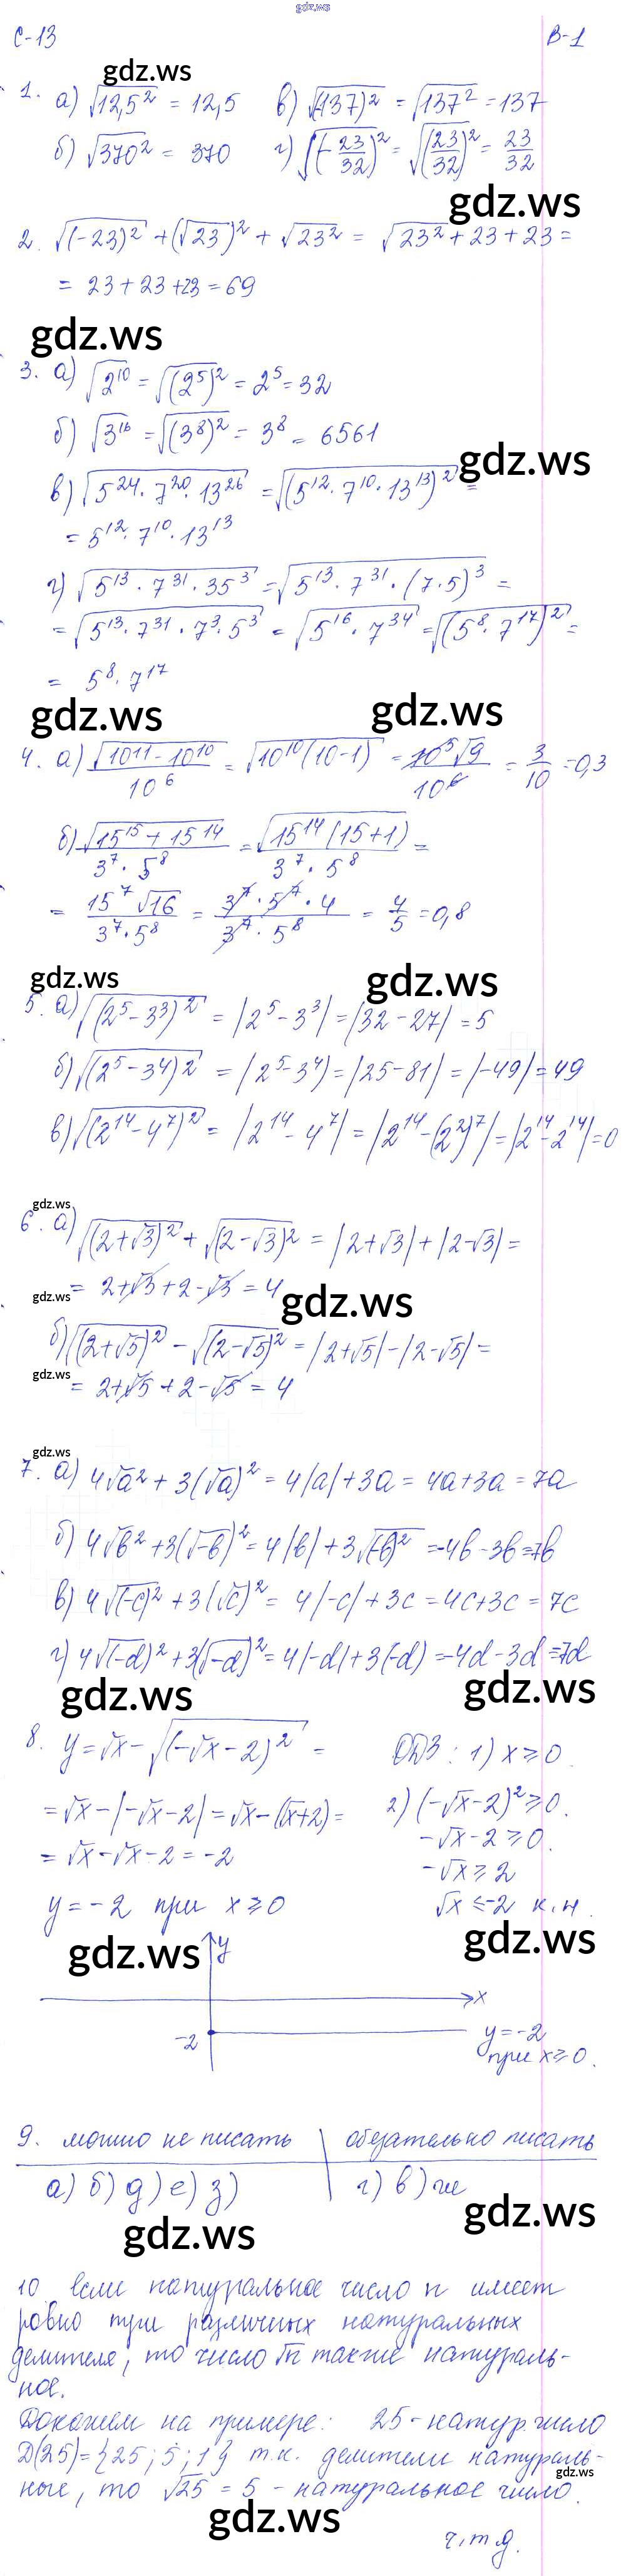 gdz.ws
С-13 В-1
gdz.ws
1. а) √12,5² = 12,5 в) √(-137)² = √137² = 137
б) √370² = 370 г) √(-23/32)² = √(23/32)² = 23/32
gdz.ws
2. √(-23)² + (√23)² + √23² = √23² + 23 + 23 =
= 23 + 23 + 23 = 69
gdz.ws
3. а) √2¹⁰ = √(2⁵)² = 2⁵ = 32
б) √3¹⁶ = √(3⁸)² = 3⁸ = 6561
gdz.ws
в) √5²⁴·7²⁰·13²⁶ = √(5¹²·7¹⁰·13¹³)² =
= 5¹²·7¹⁰·13¹³
г) √5¹³·7³¹·35³ = √5¹³·7³¹·(7·5)³ =
= √5¹³·7³¹·7³·5³ = √5¹⁶·7³⁴ = √(5⁸·7¹⁷)² =
= 5⁸·7¹⁷
gdz.ws gdz.ws
4. а) √10¹¹ - 10¹⁰ / 10⁶ = √10¹⁰(10-1) = 10⁵√9 / 10⁶ = 3/10 = 0,3
б) √15¹⁵ + 15¹⁴ / 3⁷·5⁸ = √15¹⁴(15+1) / 3⁷·5⁸ =
= 15⁷√16 / 3⁷·5⁸ = 3⁷·5⁷·4 / 3⁷·5⁸ = 4/5 = 0,8
gdz.ws gdz.ws
5. а) √(2⁵-3³)² = |2⁵-3³| = |32-27| = 5
б) √(2⁵-3⁴)² = |2⁵-3⁴) = |25-81| = |-49| = 49
в) √(2¹⁴-4⁷)² = |2¹⁴-4⁷| = |2¹⁴-(2²)⁷| = |2¹⁴-2¹⁴| = 0
gdz.ws
6. а) √(2+√3)² + √(2-√3)² = |2+√3| + |2-√3| =
gdz.ws = 2+√3+2-√3 = 4
gdz.ws
б) √(2+√5)² - √(2-√5)² = |2+√5| - |2-√5| =
gdz.ws
= 2+√5+2-√5 = 4
gdz.ws
7. а) 4√a² + 3(√a)² = 4|a| + 3a = 4a+3a = 7a
б) 4√b² + 3(√-b)² = 4|b| + 3√(-b)² = -4b - 3b = -7b
в) 4√(-c)² + 3(√c)² = 4|-c| + 3c = 4c+3c = 7c
г) 4√(-d)² + 3(√-d)² = 4|-d| + 3(-d) = -4d - 3d = -7d
gdz.ws gdz.ws
8. y = √x - √(-√x-2)² = ОДЗ: 1) x ≥ 0
= √x - |-√x-2| = √x - (√x+2) = 2) (-√x-2)² ≥ 0.
= √x - √x - 2 = -2 -√x - 2 ≥ 0.
-√x ≥ 2
y = -2 при x ≥ 0 √x ≤ -2 к.н.
gdz.ws gdz.ws
y
x
-2 y = -2
при x ≥ 0.
9. можно не писать | обязательно писать
а) б) д) е) з) | г) в) ж
gdz.ws gdz.ws
10 если натуральное число n имеет
ровно три различных натуральных
делителя, то число √n также натураль-
ное.
Докажем на примере: 25 - натур. число
D(25) = {25; 5; 1} т.к. делители натураль-
gdz.ws
ные, то √25 = 5 - натуральное число.
gdz.ws
ч.т.д.